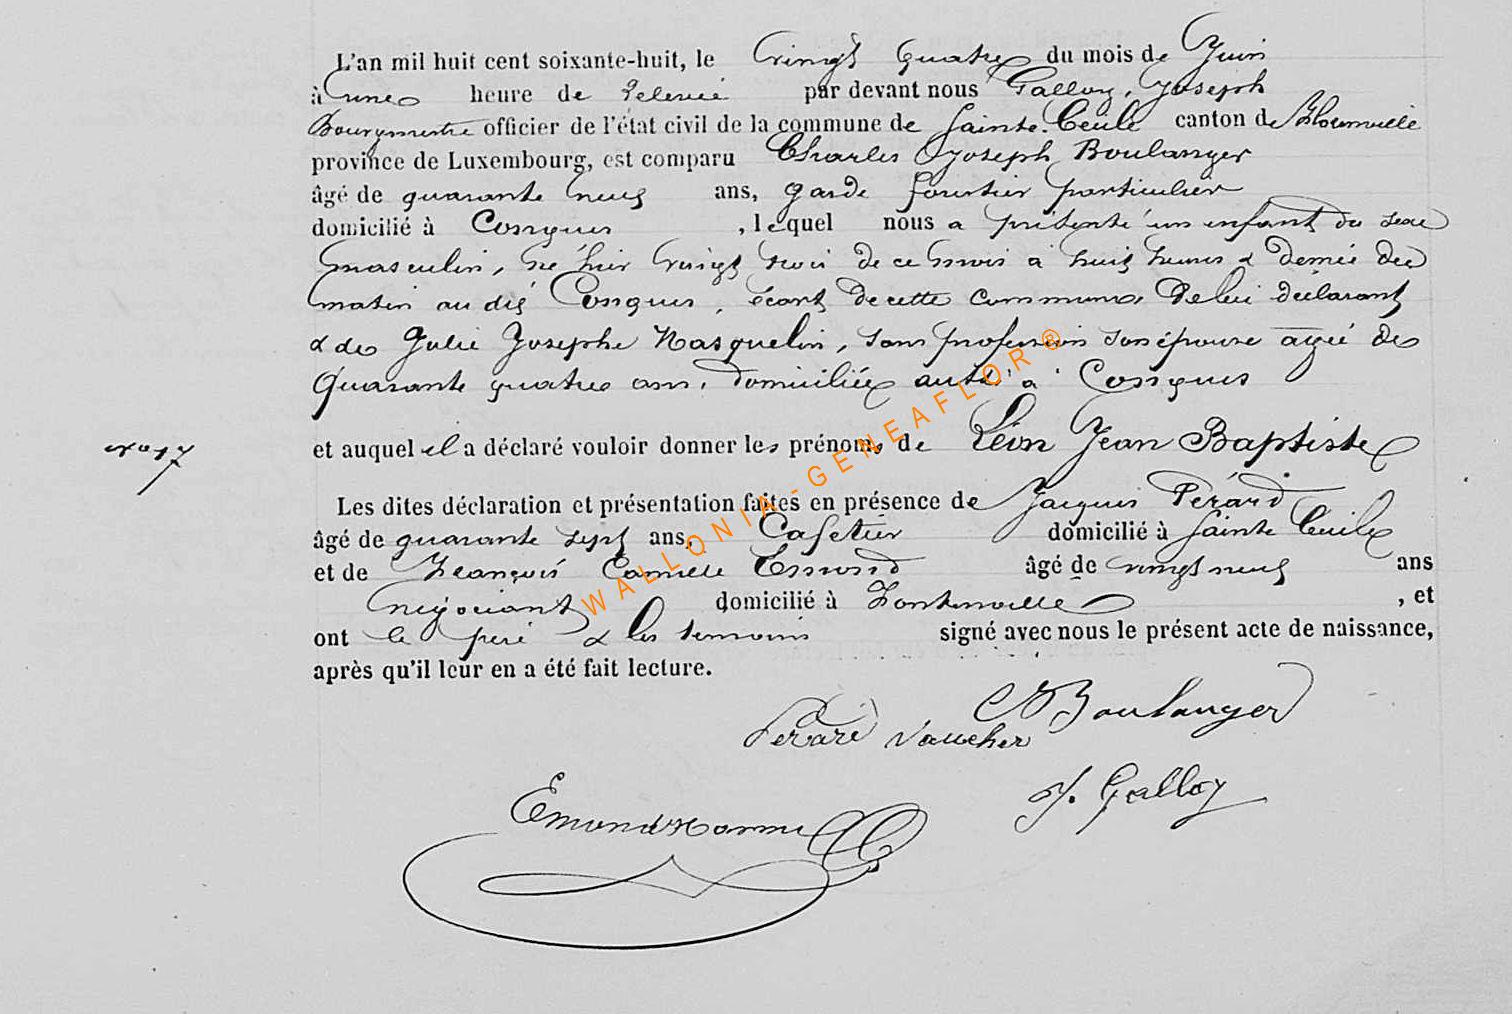 L'an mil huit cent soixante-huit, le vingt quatre du mois de Juin
à une heure de relevée par devant nous Galloy, Joseph
Bourgmestre officier de l'état civil de la commune de Sainte-Cécile canton de Florenville
province de Luxembourg, est comparu Charles Joseph Boulanger
âgé de quarante neuf ans, garde forestier particulier
domicilié à Conques , lequel nous a présenté un enfant du sexe
masculin, né hier vingt trois de ce mois à huit heures & demie du
matin au dit Conques, écart de cette commune de lui déclarant
& de Julie Josephe Nasquelin, sans profession son épouse agée de
quarante quatre ans, domiciliée aussi à Conques
et auquel il a déclaré vouloir donner les prénoms de Léon Jean Baptiste
Les dites déclaration et présentation faites en présence de Jacques Pérard
âgé de quarante sept ans, Cafetier domicilié à Sainte Cécile
et de François Camille Emond âgé de vingt neuf ans
négociant domicilié à Fontenoille , et
ont le père & les témoins signé avec nous le présent acte de naissance,
après qu'il leur en a été fait lecture.
Boulanger
Pérard Vaucher
J. Galloy
Emond
WALLONIA-GENEAFLOR®